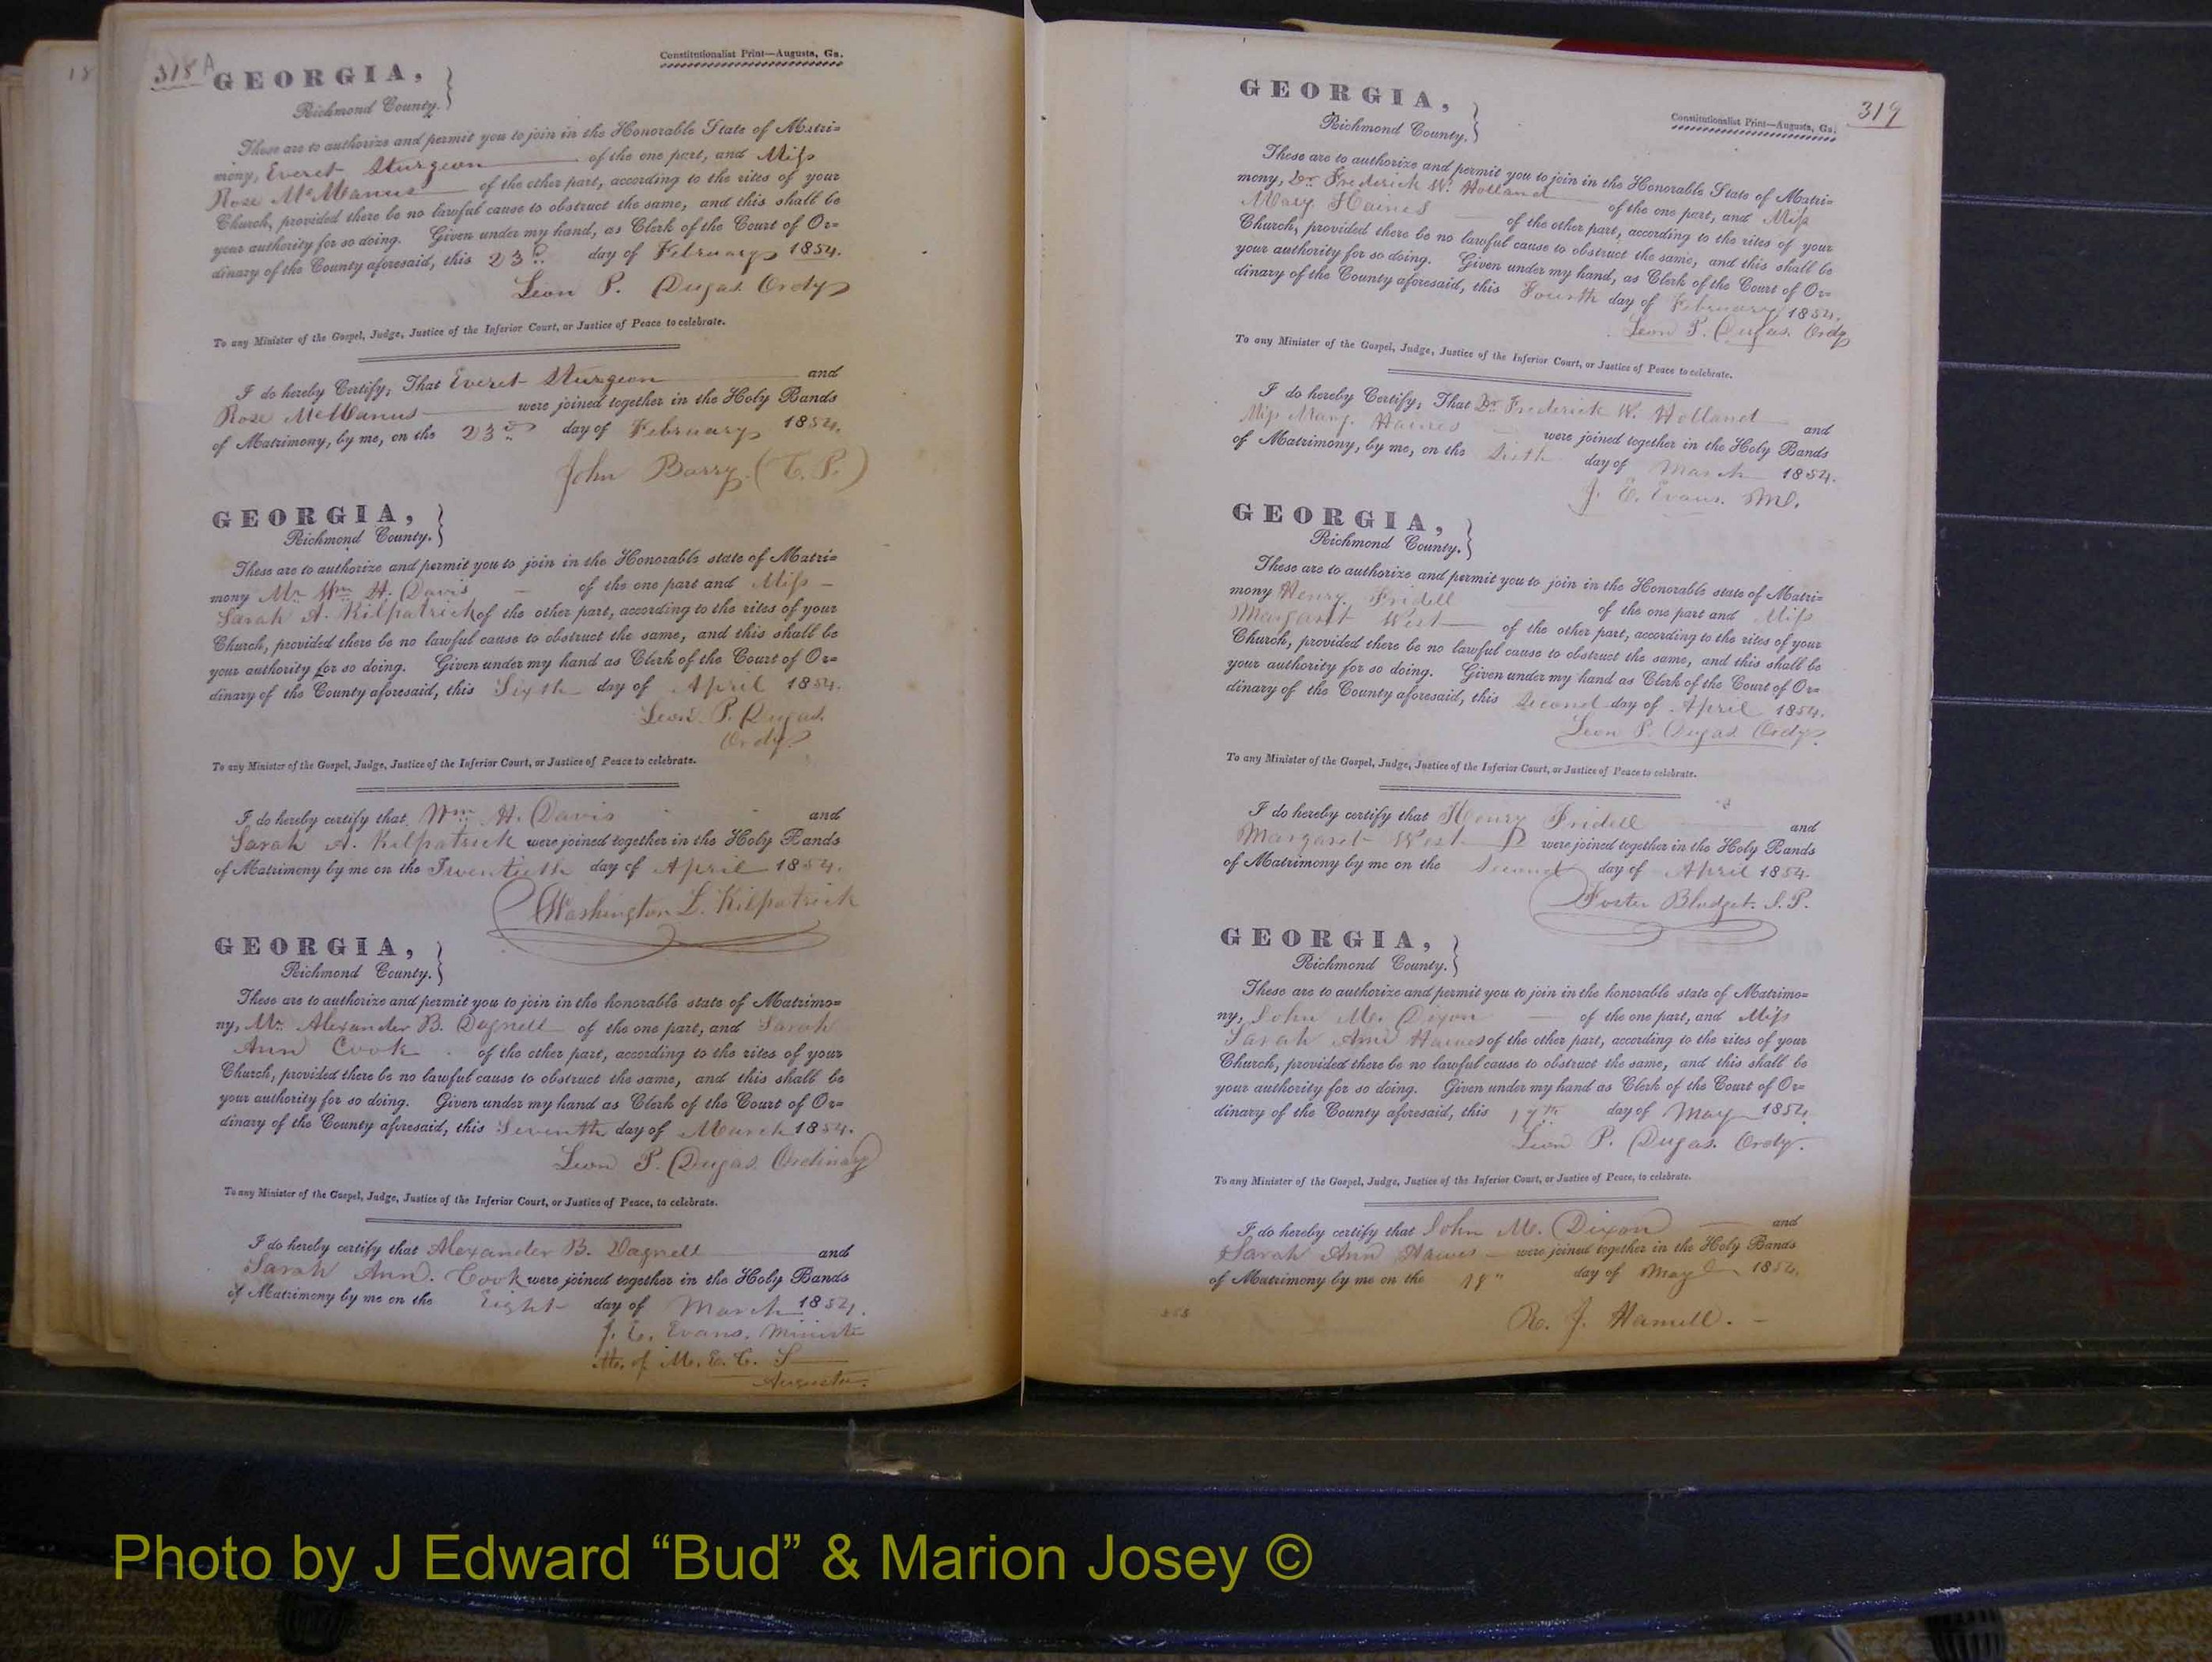 318 A
Constitutionalist Print—Augusta, Ga.
GEORGIA,
Richmond County.
These are to authorize and permit you to join in the Honorable State of Matri=
mony, Everet Sturgeon of the one part, and Miss
Rose McManus of the other part, according to the rites of your
Church, provided there be no lawful cause to obstruct the same, and this shall be
your authority for so doing. Given under my hand, as Clerk of the Court of Or=
dinary of the County aforesaid, this 23d day of February 1854.
Leon P. Dugas Ordy
To any Minister of the Gospel, Judge, Justice of the Inferior Court, or Justice of Peace to celebrate.
I do hereby Certify, That Everet Sturgeon and
Rose McManus were joined together in the Holy Bands
of Matrimony, by me, on the 23d day of February 1854.
John Barry.
GEORGIA,
Richmond County.
These are to authorize and permit you to join in the Honorable state of Matri=
mony Mr Wm H. Davis of the one part and Miss
Sarah A. Kilpatrick of the other part, according to the rites of your
Church, provided there be no lawful cause to obstruct the same, and this shall be
your authority for so doing. Given under my hand as Clerk of the Court of Or=
dinary of the County aforesaid, this Sixth day of April 1854.
Leon P. Dugas.
Ordy.
To any Minister of the Gospel, Judge, Justice of the Inferior Court, or Justice of Peace to celebrate.
I do hereby certify that Wm H. Davis and
Sarah A. Kilpatrick were joined together in the Holy Bands
of Matrimony by me on the Twentieth day of April 1854.
Washington L. Kilpatrick
GEORGIA,
Richmond County.
These are to authorize and permit you to join in the honorable state of Matrimo=
ny, Mr. Alexander B. Dagnell of the one part, and Sarah
Ann Cook of the other part, according to the rites of your
Church, provided there be no lawful cause to obstruct the same, and this shall be
your authority for so doing. Given under my hand as Clerk of the Court of Or=
dinary of the County aforesaid, this Seventh day of March 1854.
Leon P. Dugas Ordinary
To any Minister of the Gospel, Judge, Justice of the Inferior Court, or Justice of Peace, to celebrate.
I do hereby certify that Alexander B. Dagnell and
Sarah Ann. Cook were joined together in the Holy Bands
of Matrimony by me on the Eight day of March 1854.
J. E. Evans. Minister
of M. E. C. S
Augusta.
319
Constitutionalist Print—Augusta, Ga.
GEORGIA,
Richmond County.
These are to authorize and permit you to join in the Honorable State of Matri=
mony, Dr. Frederick W. Holland of the one part, and Miss
Mary Haines of the other part, according to the rites of your
Church, provided there be no lawful cause to obstruct the same, and this shall be
your authority for so doing. Given under my hand, as Clerk of the Court of Or=
dinary of the County aforesaid, this Fourth day of February 1854.
Leon P. Dugas. Ordy
To any Minister of the Gospel, Judge, Justice of the Inferior Court, or Justice of Peace to celebrate.
I do hereby Certify, That Dr. Frederick W. Holland and
Miss Mary. Haines were joined together in the Holy Bands
of Matrimony, by me, on the day of March 1854.
J. E. Evans.
GEORGIA,
Richmond County.
These are to authorize and permit you to join in the Honorable state of Matri=
mony Henry Fridell of the one part and Miss
Margarit West of the other part, according to the rites of your
Church, provided there be no lawful cause to obstruct the same, and this shall be
your authority for so doing. Given under my hand as Clerk of the Court of Or=
dinary of the County aforesaid, this Second day of April 1854.
Leon P. Dugas Ordy.
To any Minister of the Gospel, Judge, Justice of the Inferior Court, or Justice of Peace to celebrate.
I do hereby certify that Henry Fridell and
Margaret West were joined together in the Holy Bands
of Matrimony by me on the Second day of April 1854.
Foster Blodget. J. P.
GEORGIA,
Richmond County.
These are to authorize and permit you to join in the honorable state of Matrimo=
ny, John M. Dixon of the one part, and Miss
Sarah Ann Hawes of the other part, according to the rites of your
Church, provided there be no lawful cause to obstruct the same, and this shall be
your authority for so doing. Given under my hand as Clerk of the Court of Or=
dinary of the County aforesaid, this 17th day of May 1854.
Leon P. Dugas. Ordy.
To any Minister of the Gospel, Judge, Justice of the Inferior Court, or Justice of Peace, to celebrate.
I do hereby certify that John M. Dixon and
Sarah Ann Hawes were joined together in the Holy Bands
of Matrimony by me on the 18" day of May 1854.
R. J. Harwell.
Photo by J Edward “Bud” & Marion Josey ©